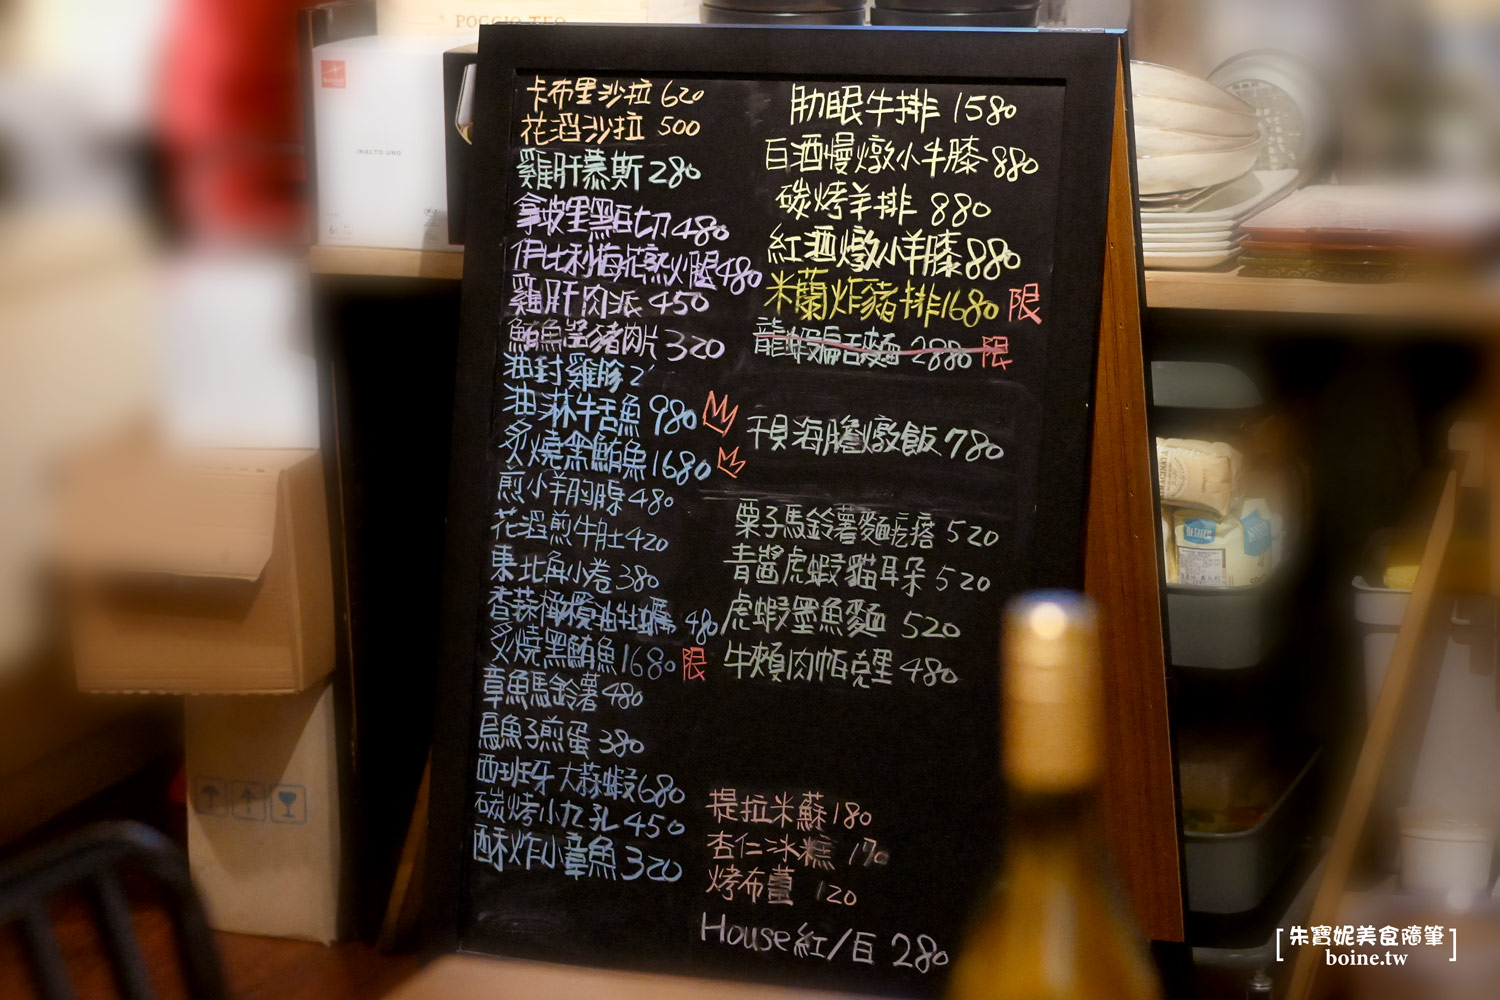 POGGIO TEO
INALTO UNO
卡布里沙拉 620
花滔沙拉 500
雞肝慕斯 280
拿坡里黑白切 480
伊比利梅花熟火腿 480
雞肝肉派 450
鮪魚醬豬肉片 320
油封雞胗 2
油淋牛舌魚 980
炙燒黑鮪魚 1680
煎小羊胸腺 480
花滔煎牛肚 420
東北角小卷 380
香蒜橄欖油牡蠣 480
炙燒黑鮪魚 1680 限
章魚馬鈴薯 480
烏魚子煎蛋 380
西班牙大蒜蝦 680
碳烤小九孔 450
酥炸小章魚 320
肋眼牛排 1580
白酒慢燉小牛膝 880
碳烤羊排 880
紅酒燉小羊膝 880
米蘭炸豬排 1680 限
龍蝦扁舌麵 2880 限
干貝海膽燉飯 780
栗子馬鈴薯麵疙瘩 520
青醬虎蝦貓耳朵 520
虎蝦墨魚麵 520
牛頰肉帕克里 480
提拉米蘇 180
杏仁冰糕 170
烤布蕾 120
House 紅/白 280
朱寶妮美食隨筆
boine.tw